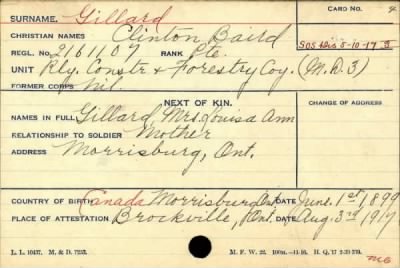 SURNAME. Gillard CARD NO. 
CHRISTIAN NAMES Clinton Baird
REGL. NO. 2161107 RANK Pte. SOS 5-10-17
UNIT Rly. Constr & Forestry Coy. (M.D.3)
FORMER CORPS Nil.
NEXT OF KIN. CHANGE OF ADDRESS
NAMES IN FULL Gillard, Mrs. Louisa Ann
RELATIONSHIP TO SOLDIER Mother
ADDRESS Morrisburg, Ont.
COUNTRY OF BIRTH Canada Morrisburg Ont. DATE June. 1st, 1899
PLACE OF ATTESTATION Brockville, Ont. DATE Aug. 3rd 1917
L. L. 10437. M. & D. 7253. M. F. W. 22.